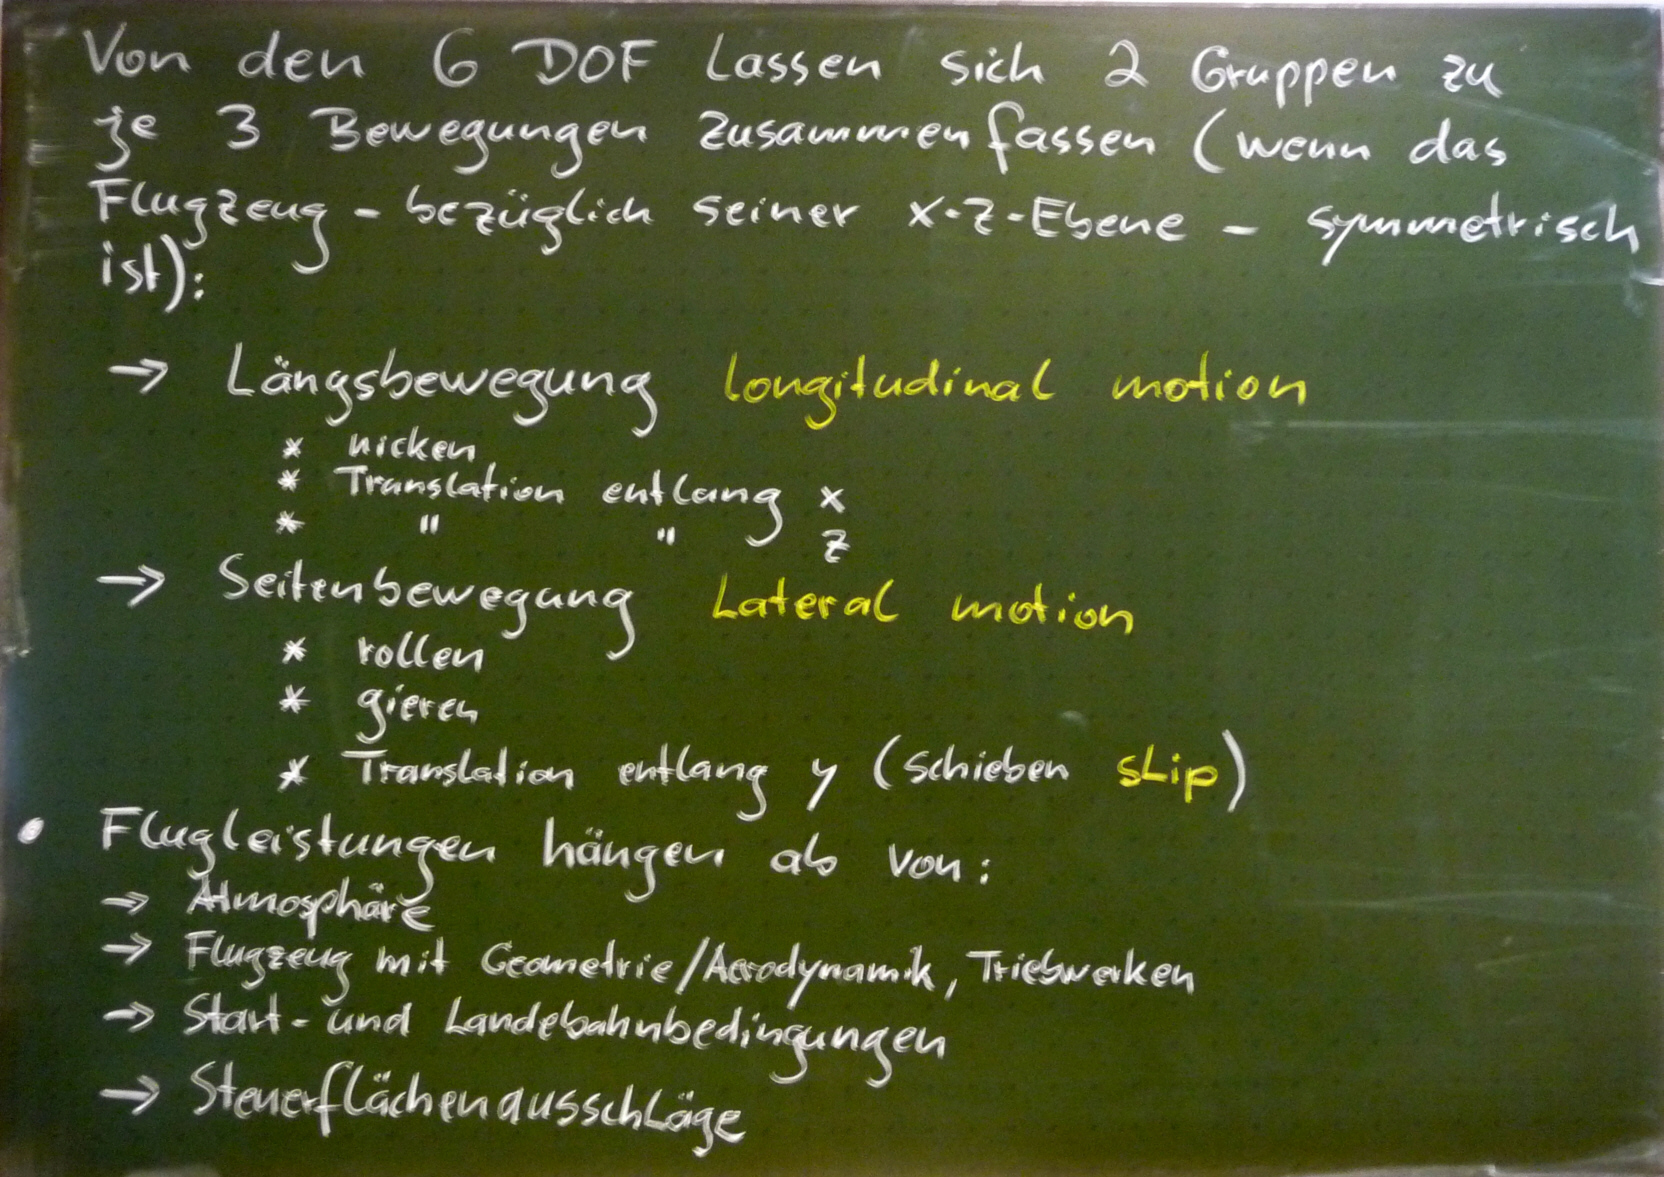 Von den 6 DOF lassen sich 2 Gruppen zu
je 3 Bewegungen zusammenfassen (wenn das
Flugzeug - bezüglich seiner x-z-Ebene - symmetrisch
ist):
→ Längsbewegung longitudinal motion
* nicken
* Translation entlang x
* " " z
→ Seitenbewegung Lateral motion
* rollen
* gieren
* Translation entlang y (schieben slip)
• Flugleistungen hängen ab von:
→ Atmosphäre
→ Flugzeug mit Geometrie/Aerodynamik, Triebwerken
→ Start- und Landebahnbedingungen
→ Steuerflächenausschläge